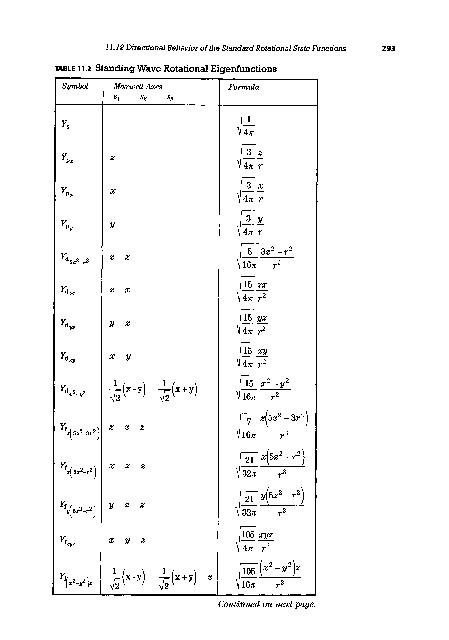 11.12 Directional Behavior of the Standard Rotational State Functions 293
TABLE 11.2 Standing Wave Rotational Eigenfunctions
Symbol Maxwell Axes Formula
s₁ s₂ s₃
Y_s √(1/4π)
Y_pz z √(3/4π) z/r
Y_px x √(3/4π) x/r
Y_py y √(3/4π) y/r
Y_d3z²-r² z z √(5/16π) (3z² - r²)/r²
Y_dxz z x √(15/4π) zx/r²
Y_dyz y z √(15/4π) yz/r²
Y_dxy x y √(15/4π) xy/r²
Y_dx²-y² 1/√2 (x-y) 1/√2 (x+y) √(15/16π) (x² - y²)/r²
Y_fz(5z²-3r²) z z z √(7/16π) z(5z² - 3r²)/r³
Y_fx(5z²-r²) x z z √(21/32π) x(5z² - r²)/r³
Y_fy(5z²-r²) y z z √(21/32π) y(5z² - r²)/r³
Y_fxyz x y z √(105/4π) xyz/r³
Y_f(x²-y²)z 1/√2 (x-y) 1/√2 (x+y) z √(105/16π) (x² - y²)z/r³
Continued on next page.